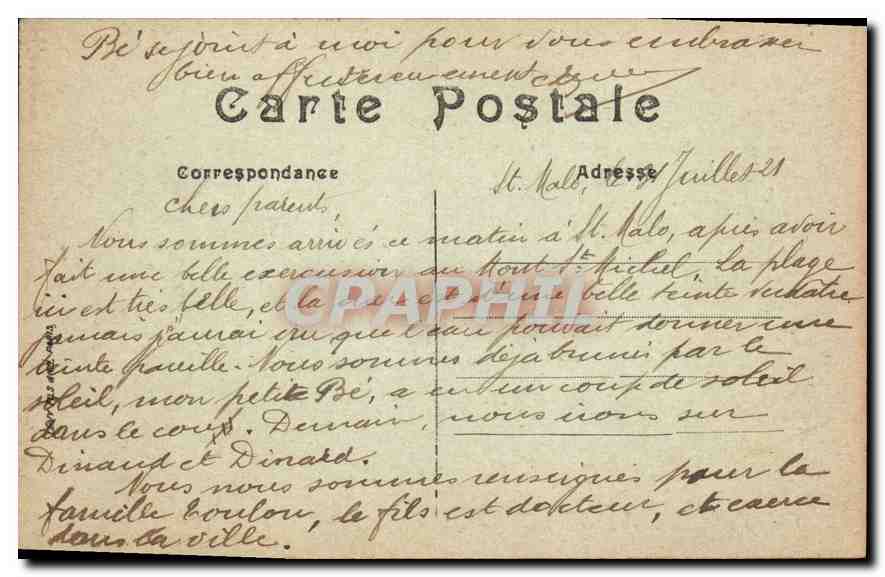 Bé se joint à moi pour vous embrasser
bien affectueusement
Carte Postale
Correspondance
Adresse
St. Malo, le 31 Juillet 21
Chers parents,
Nous sommes arrivés ce matin à St. Malo, après avoir
fait une belle excursion au Mont St. Michel. La plage
ici est très belle, et la mer est d'une belle teinte verdâtre
jamais j'aurai cru que l'eau pouvait donner une
teinte pareille. Nous sommes déjà brunis par le
soleil, mon petit Bé, a eu un coup de soleil
dans le cou. Demain, nous irons sur
Dinaud et Dinard.
Nous nous sommes renseignés pour la
famille Toulon, le fils est docteur, et exerce
dans la ville.
CPAPHIL